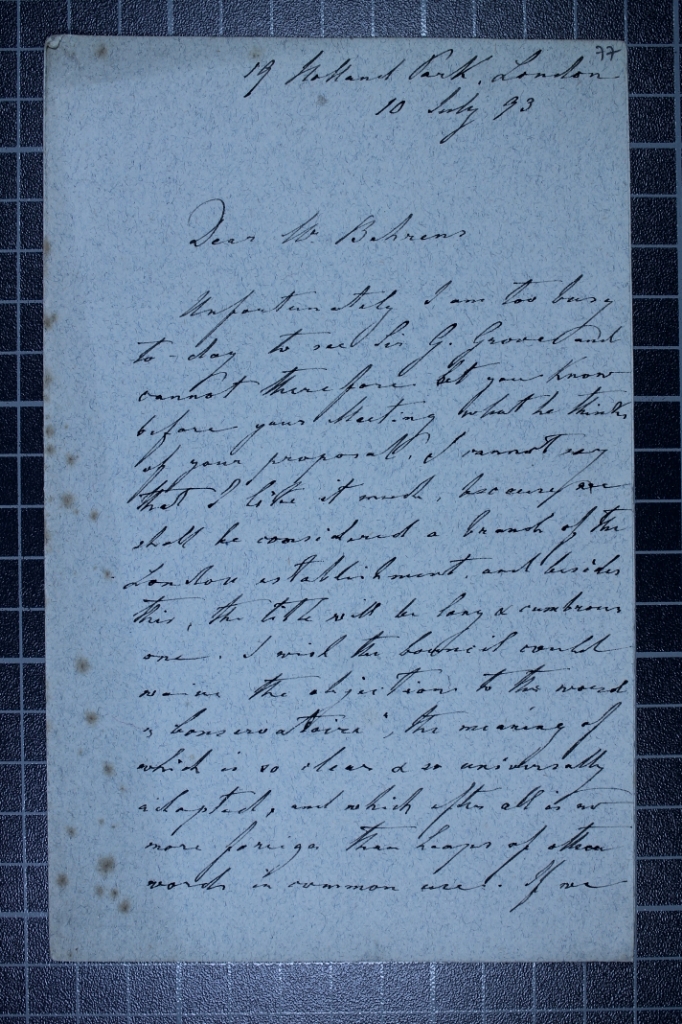 77
19 Holland Park. London
10 July 93
Dear Mr. Behrens
Unfortunately I am too busy
to-day to see Sir G. Grove and
cannot therefore let you know
before your Meeting what he thinks
of your proposal. I cannot say
that I like it much, because we
shall be considered a branch of the
London establishment. and besides
this, the title will be long & cumbrous
one. I wish the Council could
waive the objections to the word
"Conservatoire", the meaning of
which is so clear & so universally
adopted, and which after all is no
more foreign than heaps of other
words in common use. If we